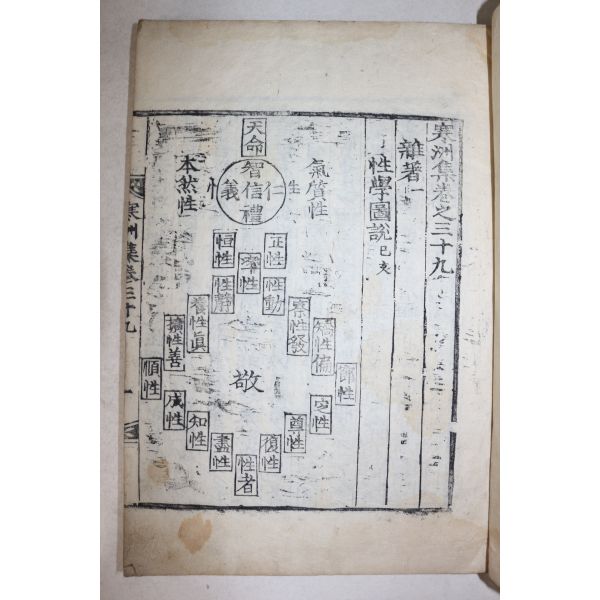 寒洲集卷之三十九
雜著
性學圖說 己亥
天命
氣質性
生
智
仁 信 義
禮
忄
本然性
正性
恒性
率性
性動
性靜
察性發
養性眞
矯性偏
擴性善
節性
順性
定性
成性
尊性
知性
復性
盡性
性者
敬
寒洲集卷三十九
一